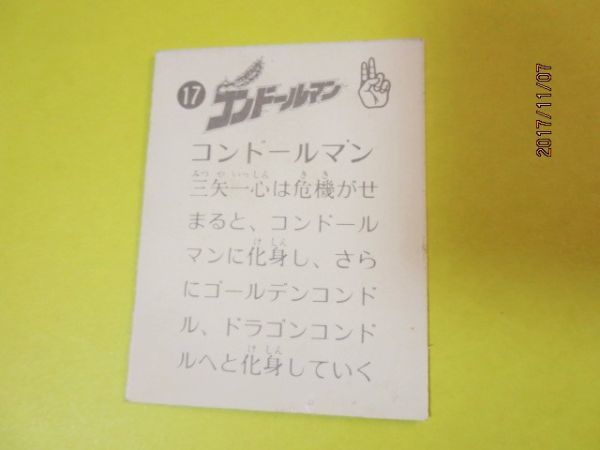 17
コンドールマン
コンドールマン
みつ や いっしん き き
三矢一心は危機がせ
まると、コンドール
け しん
マンに化身し、さら
にゴールデンコンド
ル、ドラゴンコンド
け しん
ルへと化身していく
2017/11/07